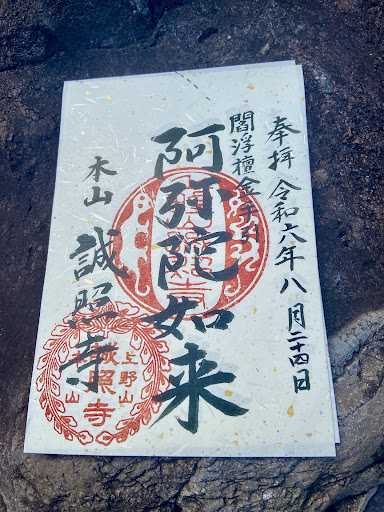 奉拝 令和六年八月二十四日
閻浮檀金手引
阿弥陀如来
本山
誠照寺
上野山
誠照寺